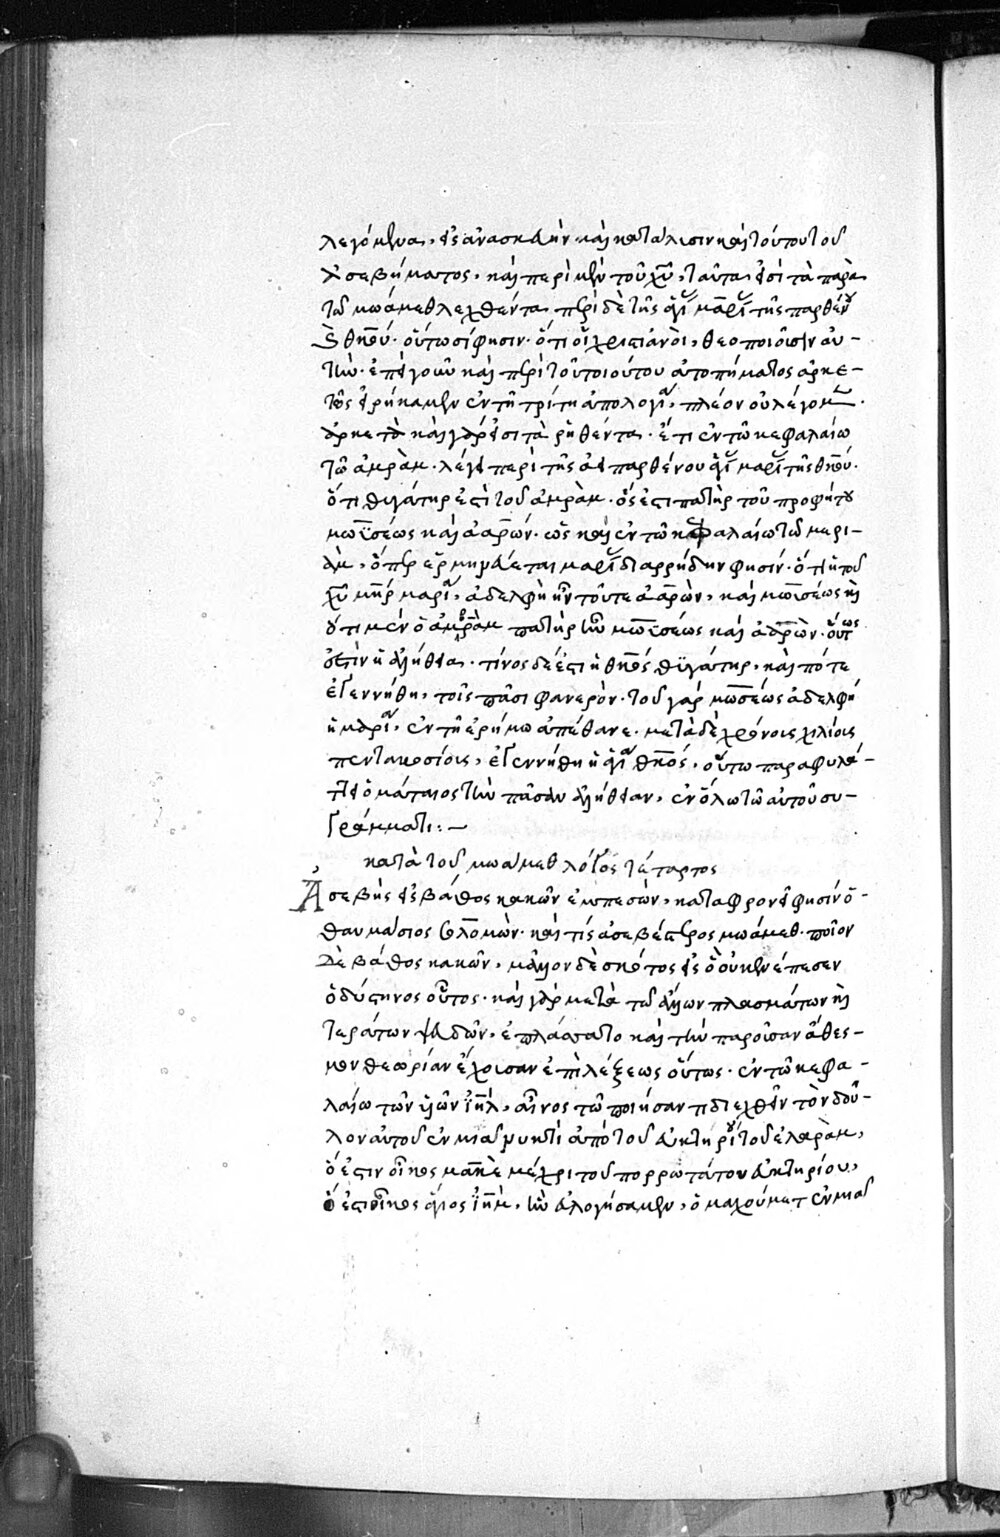 λεγόμενα, εἰς ἀνασκευὴν καὶ κατάλυσιν καὶ τούτου τοῦ
ἀσεβήματος, καὶ περὶ μὲν τοῦ χῦ, ταῦτα εἰσὶ τὰ παρὰ
τοῦ μωάμεθ λεχθέντα. περὶ δὲ τῆς ἁγί μαρί τῆς παρθένου
θκου. οὕτωσί φησιν. ὅτι οἱ χριστιανοὶ, θεοποιοῦσιν αὐ-
τήν. ἐπεὶ γοῦν καὶ περὶ τοῦ τοιούτου ἀτοπήματος ἀρκε-
τῶς εἰρήκαμεν ἐν τῆ τρίτη ἀπολογία, πλέον οὐ λέγομεν.
ἀρκετὰ καὶ γάρ εἰσι τὰ ῥηθέντα. ἔτι ἐν τῶ κεφαλαίω
τῶ ἀμρὰμ. λέγει περὶ τῆς ἀειπαρθένου ἁγί μαρί τῆς θκου.
ὅτι θυγάτηρ ἐστὶ τοῦ ἀμρὰμ. ὅς ἐστι πατὴρ τοῦ προφήτου
μωϋσέως καὶ ἀαρών. ὡς καὶ ἐν τῶ κεφαλαίω τῶ μαρι-
ὰμ, ὅπερ ἑρμηνεύεται μαρί διαρρήδην φησίν. ὅτι ἡ τοῦ
χῦ μηρ μαρία, ἀδελφὴ ἦν τοῦ τε ἀαρὼν, καὶ μωϋσέως καὶ
ὅτι μὲν ὁ ἀμβρὰμ πατὴρ ἦν μωϋσέως καὶ ἀαρὼν. οὕτως
ἐστὶν ἡ ἀλήθεια. τίνος δέ ἐστι ἡ θκος θυγάτηρ, καὶ πότε
ἐγεννήθη, τοῖς πᾶσι φανερὸν. τοῦ γὰρ μωσέως ἀδελφὴ
ἡ μαρία, ἐν τῆ ἐρήμω ἀπέθανε. μετὰ δὲ χρόνοις χιλίοις
πεντακοσίοις, ἐγεννήθη ἡ ἁγία θκος, οὕτω παραφυλά-
ττει ὁ μάταιος τὴν πᾶσαν ἀλήθειαν, ἐν ὅλω τῶ αὐτοῦ συ-
γράμματι:—
κατὰ τοῦ μωάμεθ λόγος τέταρτος
Ἀσεβὴς εἰς βάθος κακῶν ἐμπεσὼν, καταφρονεῖ φησίν ὁ
θαυμάσιος σολομὼν. καὶ τίς ἀσεβέστερος μωάμεθ. ποῖον
δὲ βάθος κακῶν, μᾶλλον δὲ σκότος εἰς ὃ οὐκ ἐνέπεσεν
ὁ δύστηνος οὗτος. καὶ γὰρ μετὰ τῶν ἄλλων πλασμάτων καὶ
τεράτων ψευδῶν, ἐπλάσατο καὶ τὴν παροῦσαν ἄθεσ-
μον θεωρίαν ἔχουσαν ἐπὶ λέξεως οὕτως. ἐν τῶ κεφα-
λαίω τῶν υἱῶν ἰηλ, αἶνος τῶ ποιήσαντι διελθεῖν τὸν δοῦ-
λον αὐτοῦ ἐν μιᾶ νυκτὶ ἀπὸ τοῦ εὐκτηρίου τοῦ ἐλαρὰμ,
ὅ ἐστιν οἶκος μακὲ μέχρι τοῦ πορρωτάτου εὐκτηρίου,
ὅ ἐστι οἶκος ἅγιος ἰημ, ὃν εὐλογήσαμεν, ὁ μαχούμετ ἐν μιᾶ